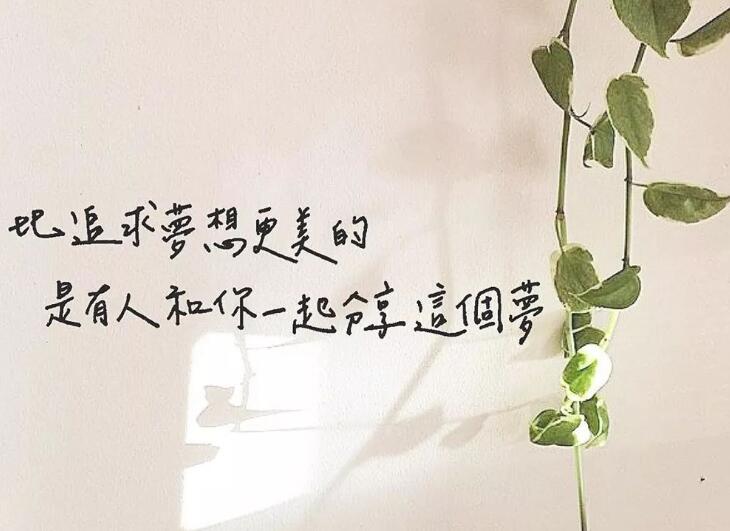 比追求夢想更美的
是有人和你一起分享這個夢